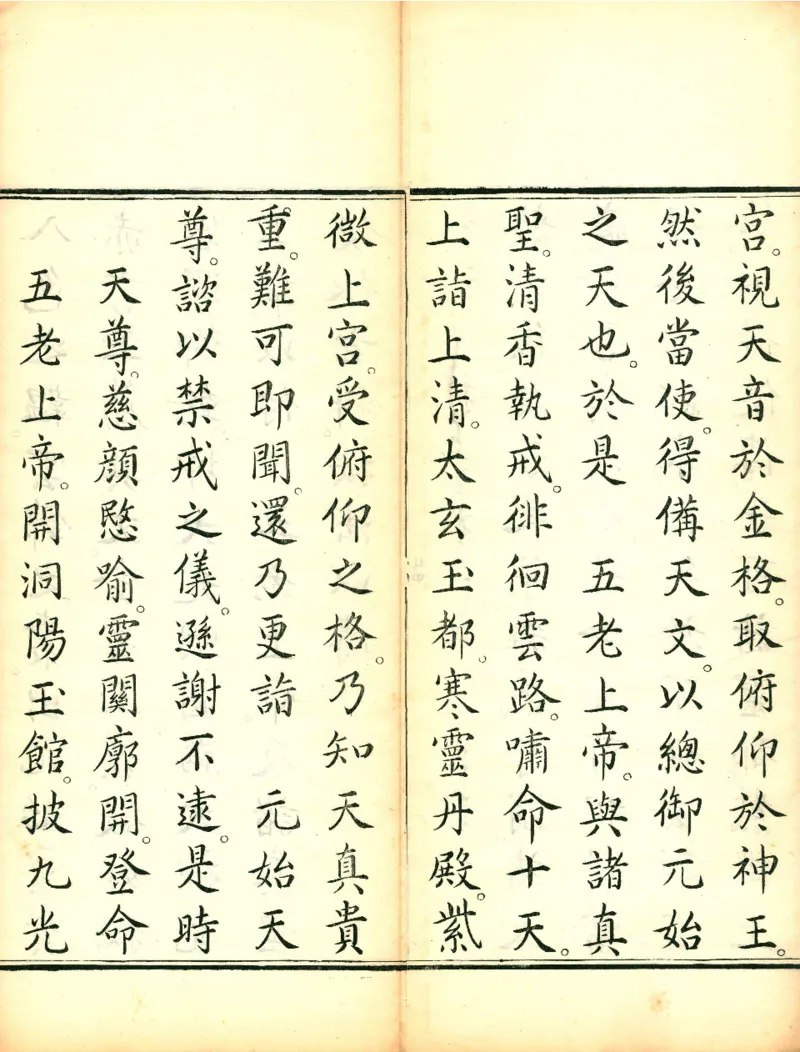 宮。視天音於金格。取俯仰於神王。
然後當使。得備天文。以總御元始
之天也。於是　五老上帝。與諸真
聖。清香執戒。徘徊雲路。嘯命十天。
上詣上清。太玄玉都。寒靈丹殿。紫
微上宮。受俯仰之格。乃知天真貴
重。難可即聞。還乃更詣　元始天
尊。諮以禁戒之儀。遜謝不逮。是時
天尊。慈顏愍喻。靈關廓開。登命
五老上帝。開洞陽玉館。披九光